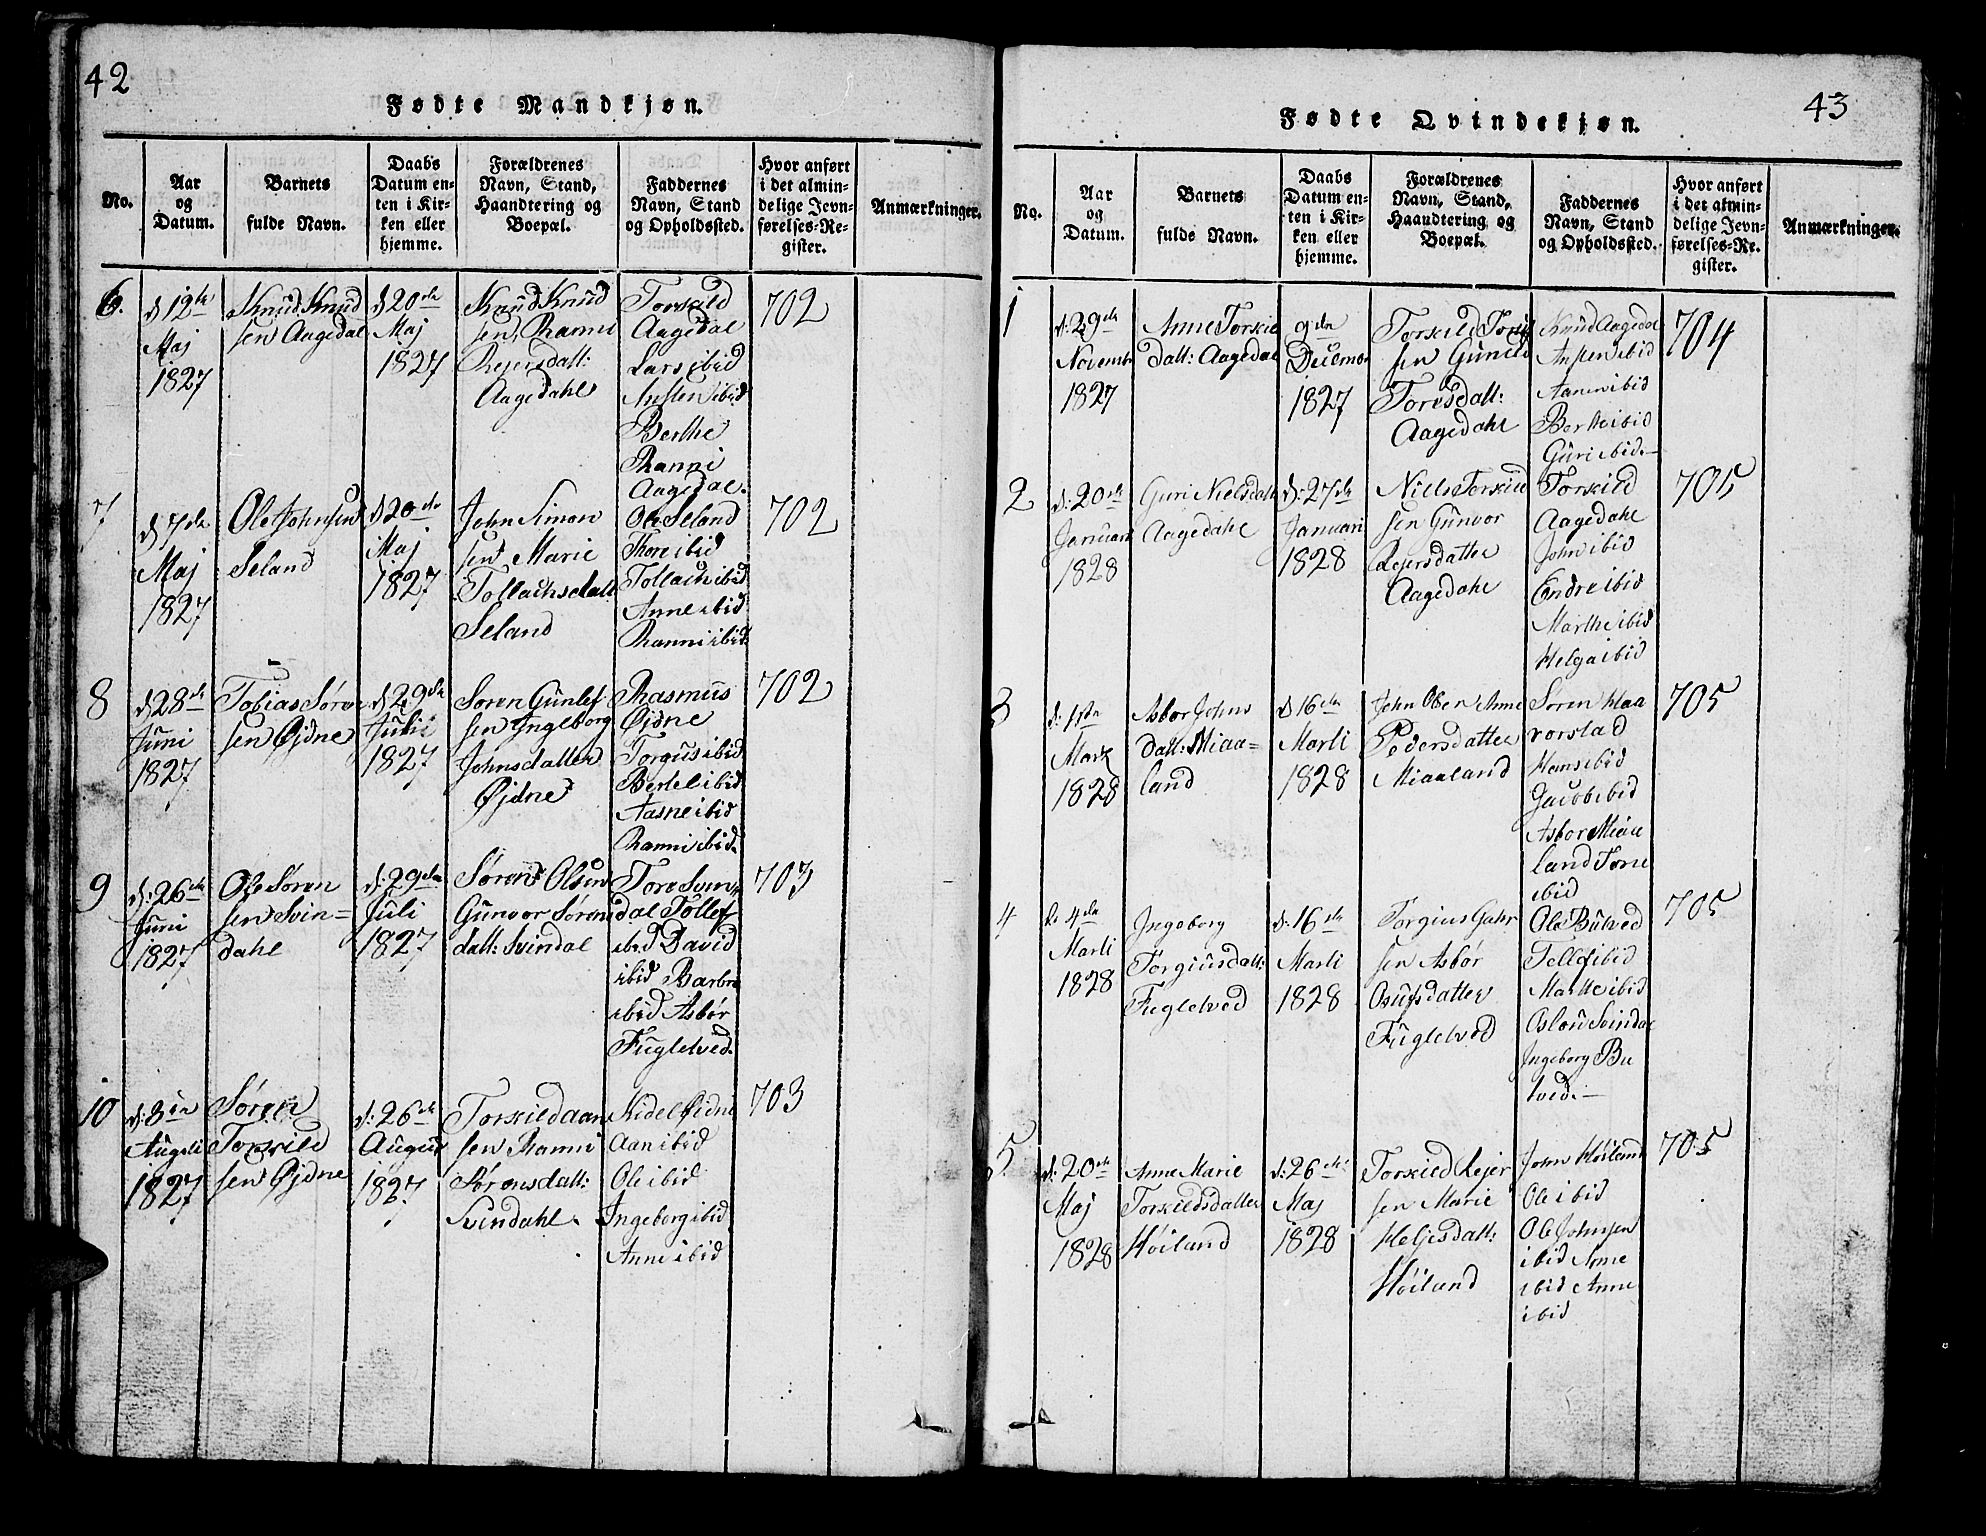 42
Fødte Mandkjøn.
No.
Aar
og
Datum.
Barnets
fulde Navn.
Daabs
Datum en-
ten i Kir-
ken eller
hjemme.
Forældrenes
Navn, Stand,
Haandtering og
Boepæl.
Faddernes
Navn, Stand
og Opholdssted.
Hvor anført
i det almin-
delige Jevn-
førelses-Re-
gister.
Anmærkninger.
6.
d 12te
Maj
1827
Knud Knud
sen Aagedal
d 20de
Maj
1827
Knud Knud
sen, Ranni
Rejersdatt:
Aagedahl
Torskild
Aagedal
Lars ibid
Austen ibid
Berthe
Ranni
Aagedal.
702
7
d 7de
Maj
1827
Ole Johnsen
Seland
d 20de
Maj
1827
John Simon
sen Marie
Tollachsdatt
Seland
Ole Seland
Thore ibid
Tollach ibid
Anne ibid
Ranni ibid.
702
8
d 28de
Juni
1827
Tobias Søren
sen Øjdne
d 29de
Juli
1827
Søren Gunlef
sen Ingeborg
Johnsdatter
Øjdne
Rasmus
Øjdne
Torgus ibid
Bertel ibid
Aasne ibid
Ranni ibid.
702
9
d: 26de
Juni
1827
Ole Søren
sen Svin=
dahl
d: 29de
Juli
1827
Søren Olsen
Gunvor Sørens
datt: Svindal
Tore Svin
dal Tollef
ibid David
ibid Barbro
ibid Asbør
Fuglelved.
703
10
d: 8de
Augusti
1827
Søren
Torskild
sen Øjdne
d: 26de
August
1827
Torskild Aan
sen Ranni
Sørensdatt:
Svindahl.
Nidel Øjdne
Aan ibid
Ole ibid
Ingeborg ibid
Anne ibid
703
43
Fødte Qvindekjøn.
No.
Aar
og
Datum.
Barnets
fulde Navn.
Daabs
Datum en-
ten i Kir-
ken eller
hjemme.
Forældrenes
Navn, Stand,
Haandtering og
Boepæl.
Faddernes
Navn, Stand
og Opholdssted.
Hvor anført
i det almin-
delige Jevn-
førelses-Re-
gister.
Anmærkninger.
1
d: 29de
November
1827
Anne Torskild
datt: Aagedal
9de
Decembr
1827
Torskild
sen Gunild
Toresdatt:
Aagedahl
Knud Aagedal
Austen ibid
Aanen ibid
Berthe ibid
Guri ibid.
704
2
d: 20de
Januari
1828
Guri Nielsdatt
Aagedahl
d: 27de
Januari
1828
Niels Torskild
sen Gunvor
Rejersdatter
Aagedahl
Torskild
Aagedahl
John ibid
Endre ibid
Marthe ibid
Helga ibid
705
3
d: 1ste
Marti
1828
Asbor Johns
datt: Miaa=
land
d 16de
Marti
1828
John Olsen Anne
Pedersdatter
Miaaland
Søren Haa
vorstad
Hans ibid
Jacob ibid
Asbor Miaa
land Tone
ibid
705
4
d: 4de
Marti
1828
Ingeborg
Torgiusdatt:
Fuglelved
d: 16de
Marti
1828
Torgius Gahr
sen Asbør
Osufsdatter
Fuglelved
Ole Butved
Tollef ibid
Marthe ibid
Oslou Svindal
Ingeborg Bu
tved.
705
5
d: 20de
Maj
1828
Anne Marie
Torskildsdatter
Høiland
d: 26de
Maj
1828
Torskild Rejer
sen Marie
Helgesdatt:
Høiland
John Høiland
Ole ibid
Ole Johnsen
ibid Anne
ibid Anne
ibid
705